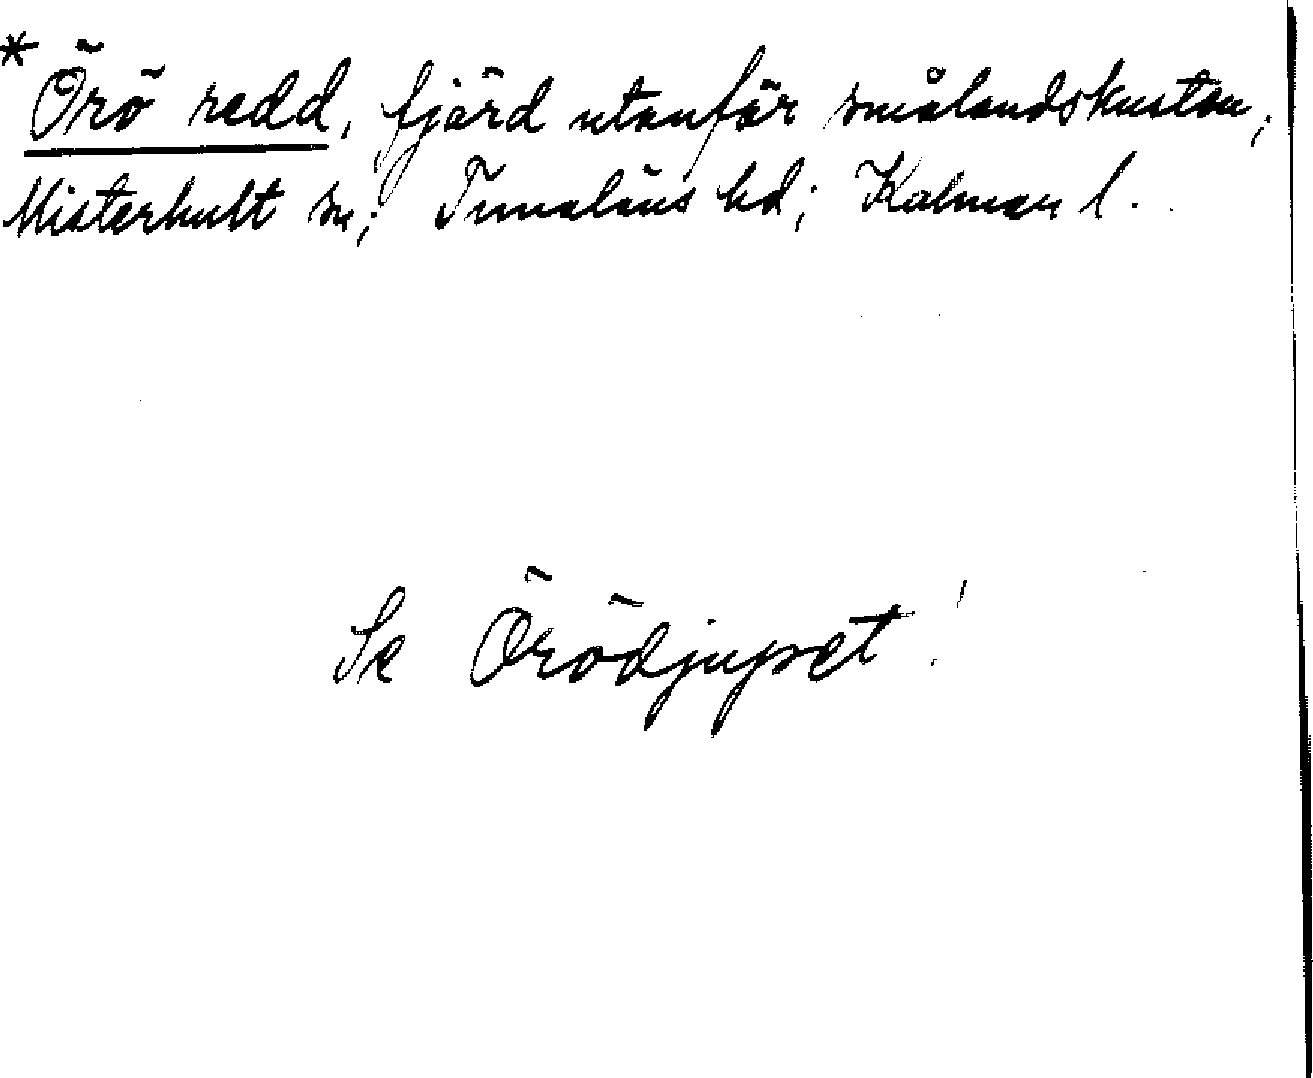 *Örö redd, fjärd utanför smålandskusten;
Misterhult sn; Tunaläns hd; Kalmar l.
Se Örödjupet!